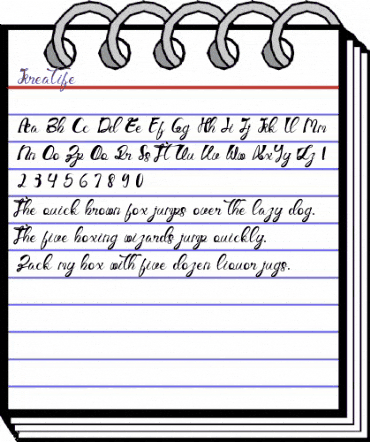 KreaLife
Aa Bb Cc Dd Ee Ff Gg Hh Ii Jj Kk Ll Mm
Nn Oo Pp Qq Rr Ss Tt Uu Vv Ww Xx Yy Zz 1
2 3 4 5 6 7 8 9 0
The quick brown fox jumps over the lazy dog.
The five boxing wizards jump quickly.
Pack my box with five dozen liquor jugs.